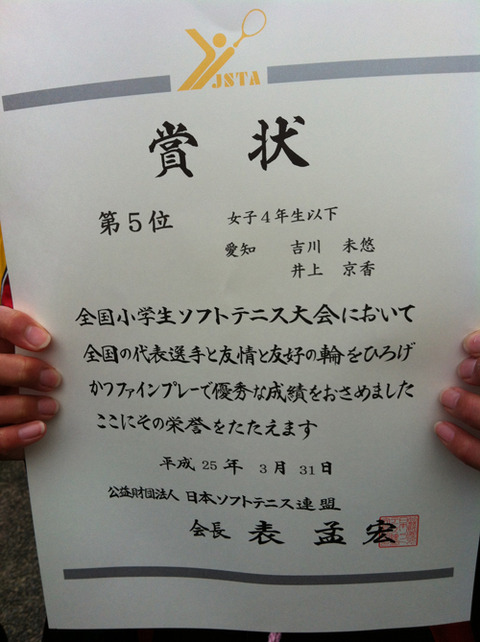 JSTA
賞状
第5位 女子4年生以下
愛知 吉川 未悠
井上 京香
全国小学生ソフトテニス大会において
全国の代表選手と友情と友好の輪をひろげ
かつファインプレーで優秀な成績をおさめました
ここにその栄誉をたたえます
平成25年3月31日
公益財団法人 日本ソフトテニス連盟
会長 表 孟宏